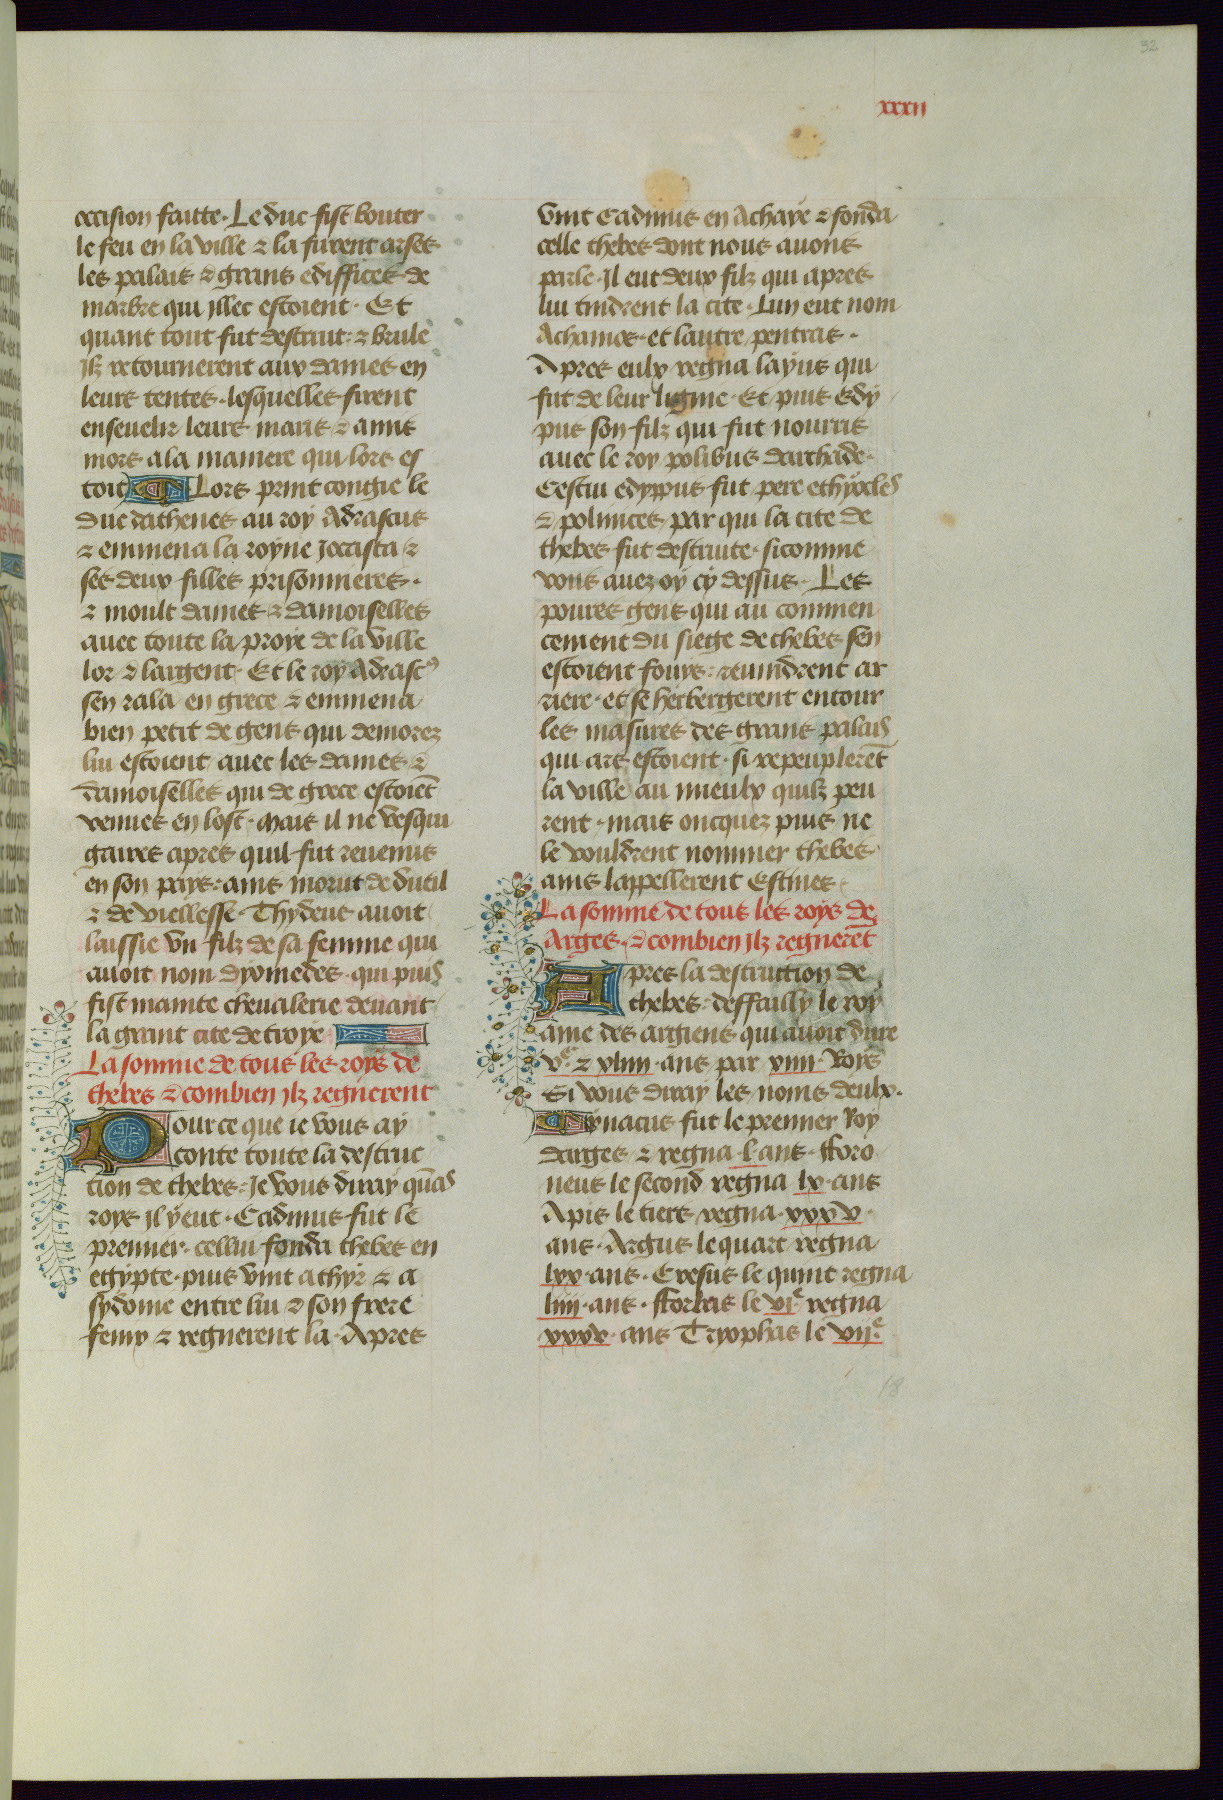 32
xxxii
occision faitte. Le duc fist bouter
le feu en la ville & la furent arses
les palais & grans ediffices de
marbre qui illec estoient. Et
quant tout fut destruit & brule
ilz retournerent aux dames en
leurs tentes. lesquelles firent
ensevelir leurs maris & amis
mors a la maniere qui lors es
toit Lors print congie le
duc dathenes au roy Adrascus
& emmena la royne jocasta &
ses deux filles prisonnieres.
& moult dames & damoiselles
avec toute la proye de la ville
lor & largent. Et le roy Adrastꝰ
sen rala en grece & emmena
bien petit de gens qui demorez
lui estoient avec les dames &
damoiselles qui de grece estoiēt
venues en lost. Mais il ne vesqui
gaires apres quil fut revenus
en son pays: ains morut de dueil
& de viellesse. Thydeus avoit
laissie un filz de sa femme qui
avoit nom dyomedes. qui puis
fist mainte chevalerie devant
la grant cite de troye
La somme de tous les roys de
thebes & combien ilz regnerent
Pour ce que ie vous ay
conte toute la destruc
tion de thebes: Je vous diray quās
roys il y eut. Cadmus fut le
premier. cellui fonda thebes en
egypte. puis vint a thyr & a
sydoine entre lui & son frere
femy & regnerent la. Apres
vint Cadmus en Achaye & fonda
celle thebes dont nous avons
parle. Il eut deux filz qui apres
lui tindrent la cite. Lun eut nom
Achames. et lautre pentras.
Apres eulx regna layus qui
fut de leur lignie. Et puis Edy
pus son filz qui fut nourris
avec le roy polibus darchade.
Cestui edyppus fut pere ethyocles
& polinices par qui la cite de
thebes fut destruite. sicomme
vous avez oy cy dessus. Les
poures gens qui au commen
cement du siege de thebes sen
estoient fouys: revindrent ar
riere. et se herbergerent entour
les masures des grans palais
qui ars estoient. si repeuplerēt
la ville au mieulx quilz peu
rent. mais oncquez puis ne
le vouldrent nommer thebes
ains lappellerent Estives
La somme de tous les roys de
Arges. & combien ilz regnerēt
Apres la destruction de
thebes. deffailly le roy
ame des argiens qui avoit dure
vᶜ. & xliiii. ans par xiiii. Roys
Si vous diray les noms deulx.
Ynacus fut le premier Roy
darges & regna. l. ans. Fforo
neus le second regna lx. ans
Apis le tiers regna. xxxv.
ans. Argus le quart regna
lxx. ans. Cresus le quint regna
liiii. ans. Fforbas le viᵉ. regna
xxxv. ans Tryophas le viiᵉ.
18